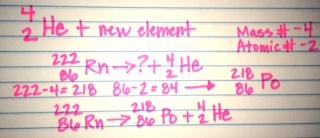 4
2 He + new element
Mass # -4
Atomic # -2
222
86 Rn → ? + 4 2 He
222-4=218 86-2=84 → 218 86 Po
222 86 Rn → 218 86 Po + 4 2 He